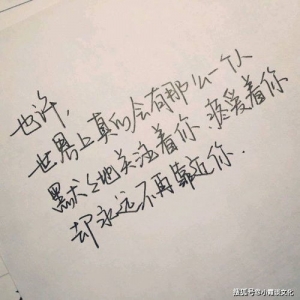 也许,
世界上真的会有那么一个人
默々地关注着你、疼爱着你
却永远不再靠近你.
搜狐号@小霞谈文化